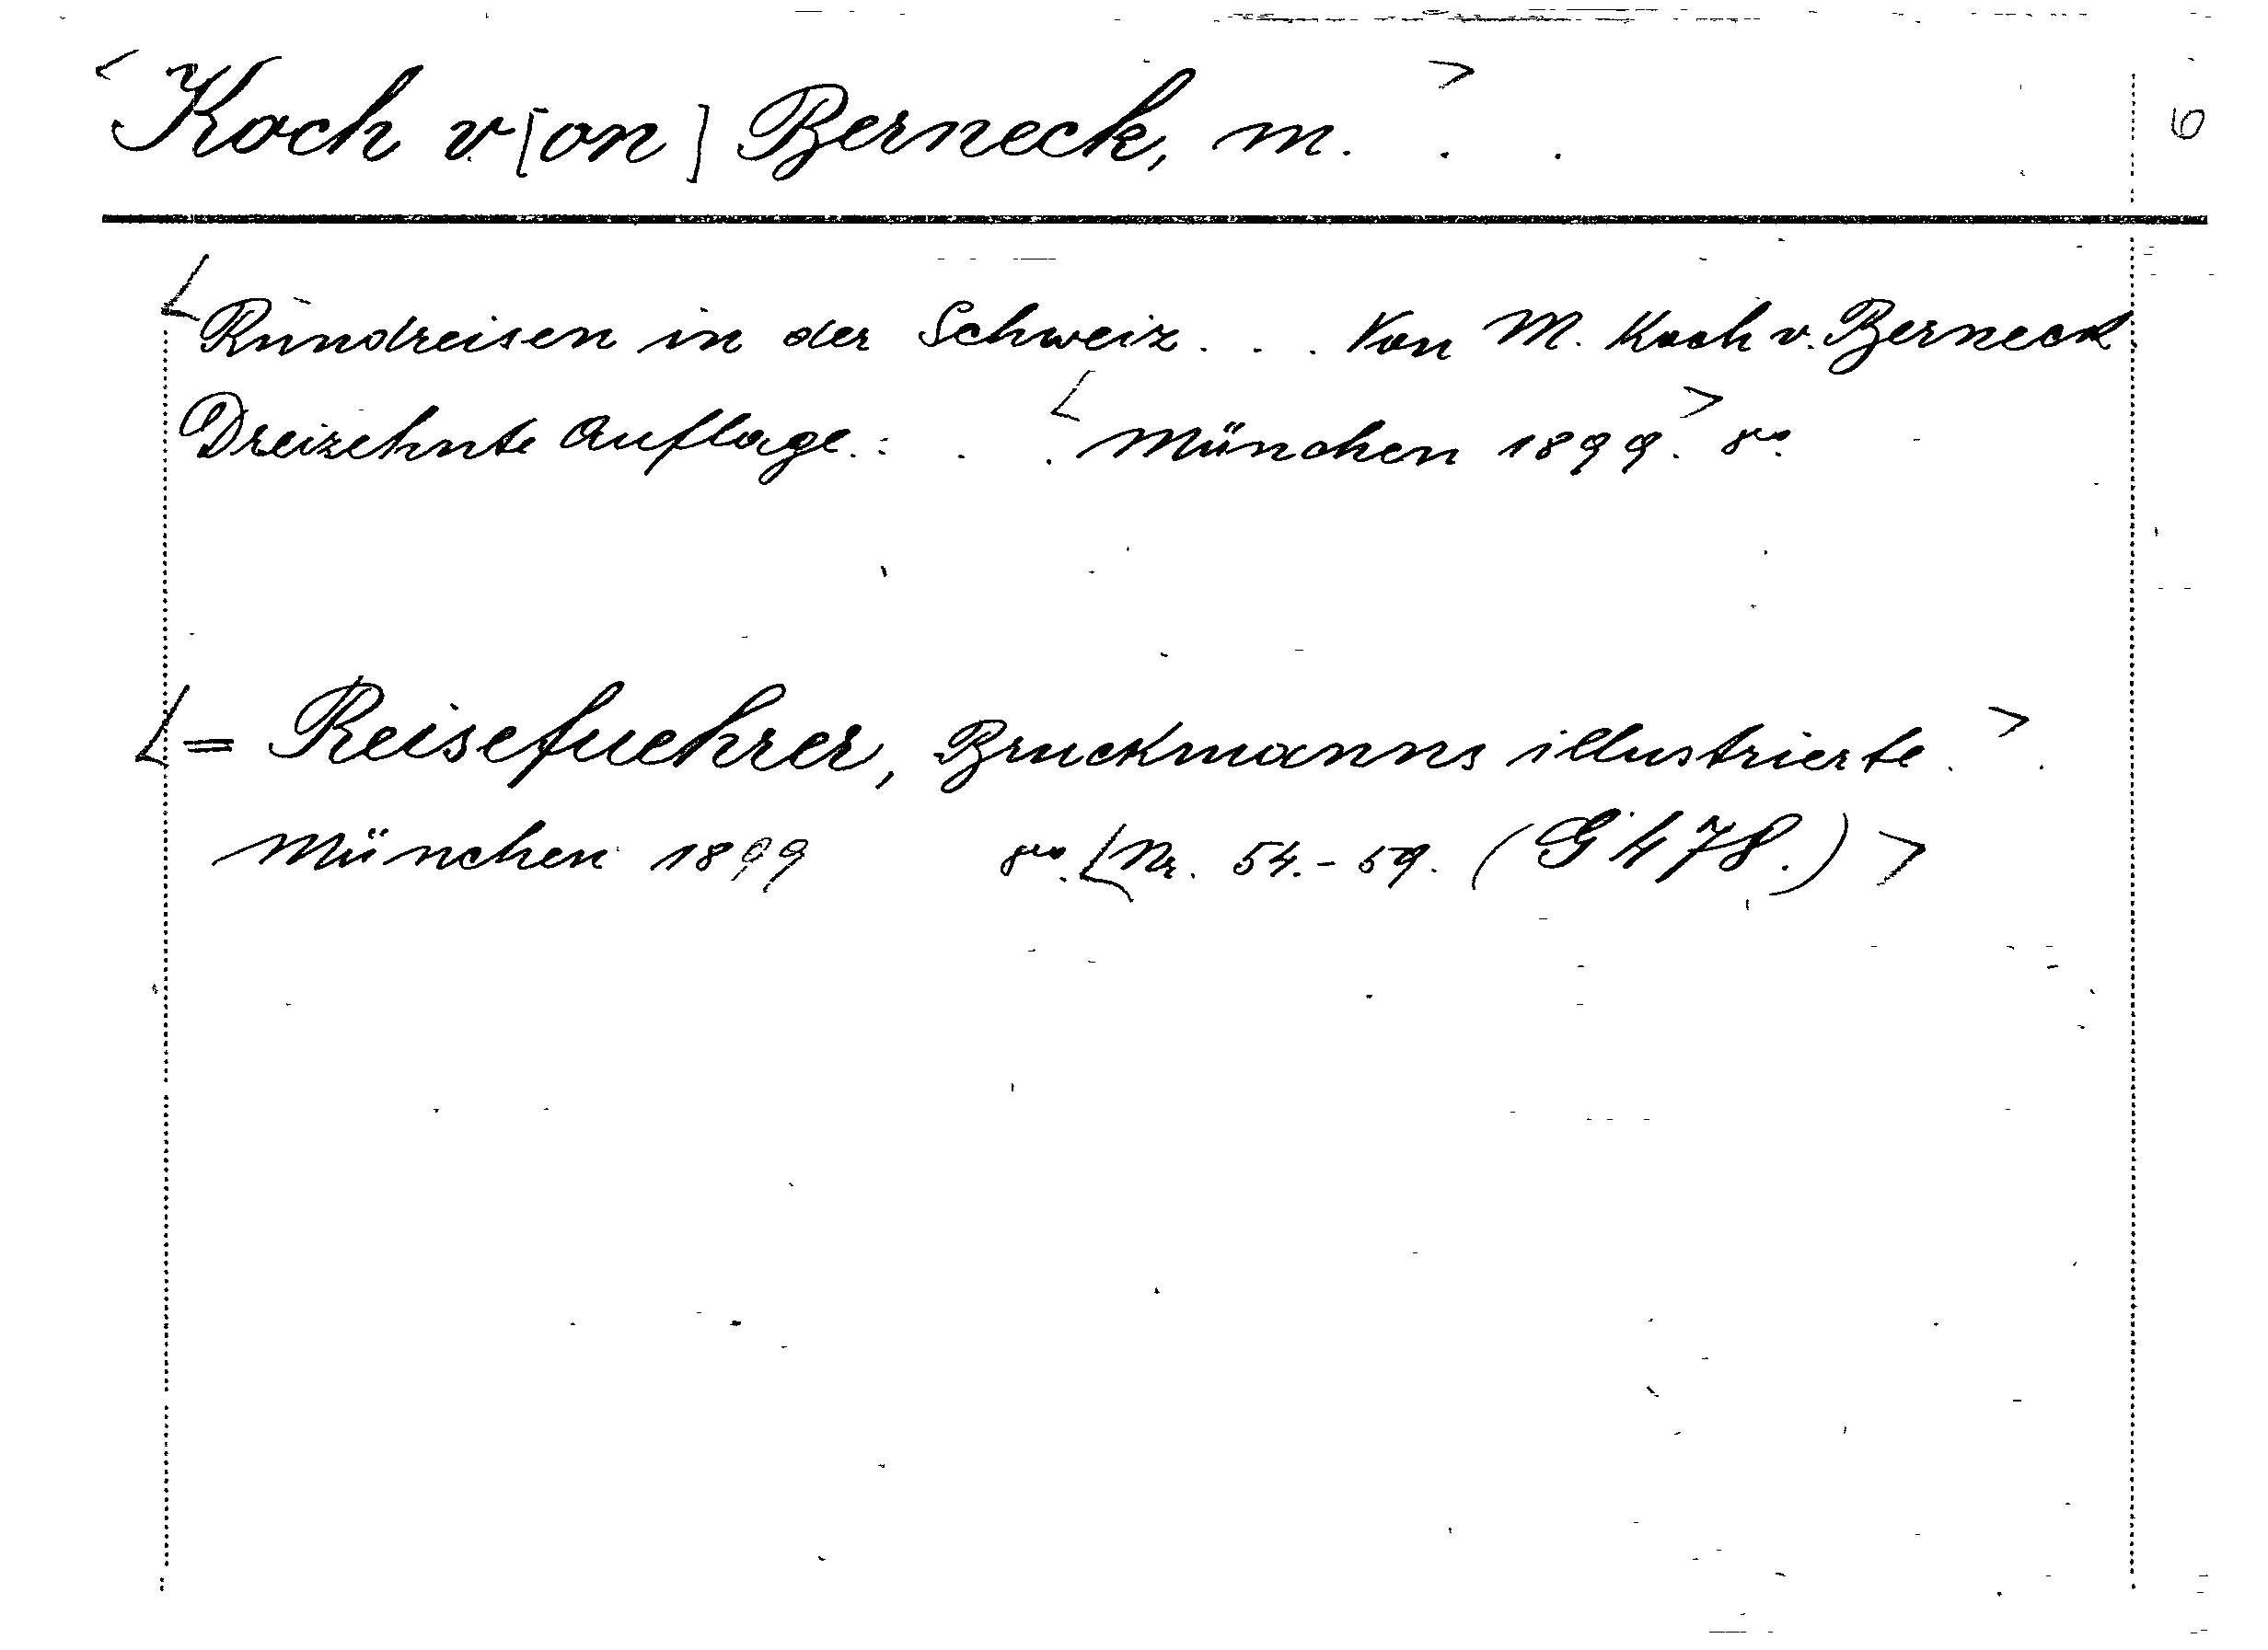 <Koch v[on] Berneck, M.> 6
<Rundreisen in der Schweiz... Von M. Koch v. Berneck
Dreizehnte Auflage... <München 1899.> 8vo.
<= Reisefuehrer, Bruckmanns illustrierte.>
München 1899 8vo. <Nr. 54.-59. (G 478.)>